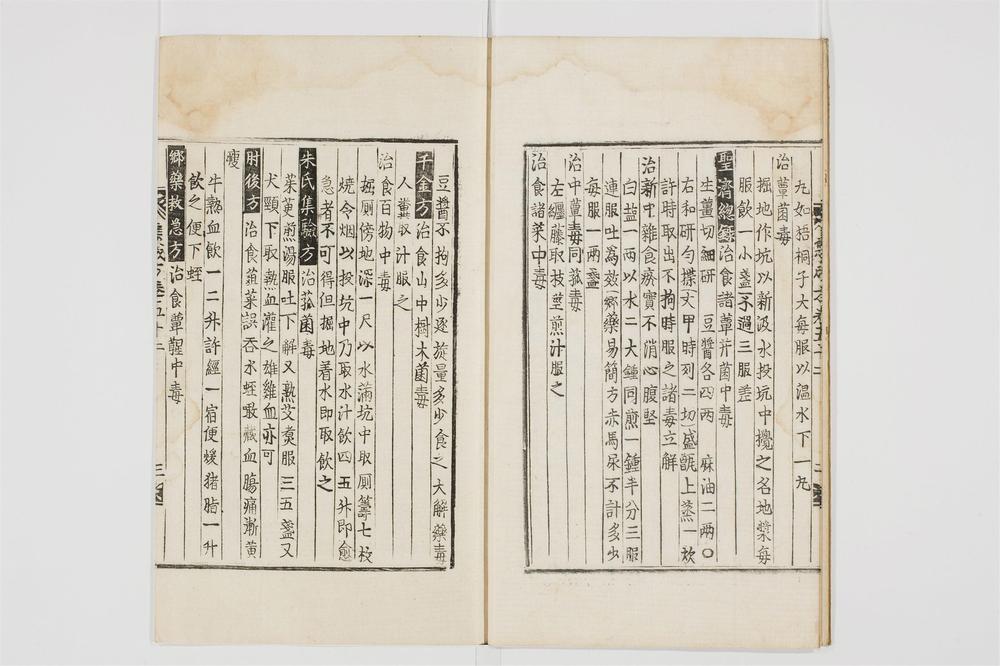 丸如梧桐子大每服以温水下一丸
治蕈菌毒
掘地作坑以新汲水投坑中攪之名地漿每
服飲一小盞不過三服差
聖濟總錄治食諸蕈并菌中毒
生薑切細研 豆醬各四兩 麻油二兩○
右和研勻攃文甲時列二切盛甑上蒸一炊
許時取出不拘時服之諸毒立解
治新中雜食瘀實不消心腹堅
白盐一兩以水二大鍾同煎一鍾半分三服
連服吐爲效鄉藥易簡方赤馬尿不計多少
每服一兩盞
治中蕈毒同菰毒
左纏藤取莖煎汁服之
治食諸菜中毒
豆醬不拘多少逐旋量多少食之大解藥毒
千金方治食山中樹木菌毒
人糞取汁服之
治食百物中毒
掘厠傍地深一尺以水滿坑中取厠籌七枚
燒令烟以投坑中乃取水汁飲四五升即愈
急者不可得但掘地着水即取飲之
朱氏集驗方治菰菌毒
茱萸煎湯服吐下解又熟艾煑服三五盞又
犬頸下取熱血灌之雄雞血亦可
肘後方治食蒩菜誤吞水蛭噉臟血膓痛漸黄
瘦
牛熱血飲一二升許經一宿便煖猪脂一升
飲之便下蛭
鄉藥救急方治食蕈蓕中毒